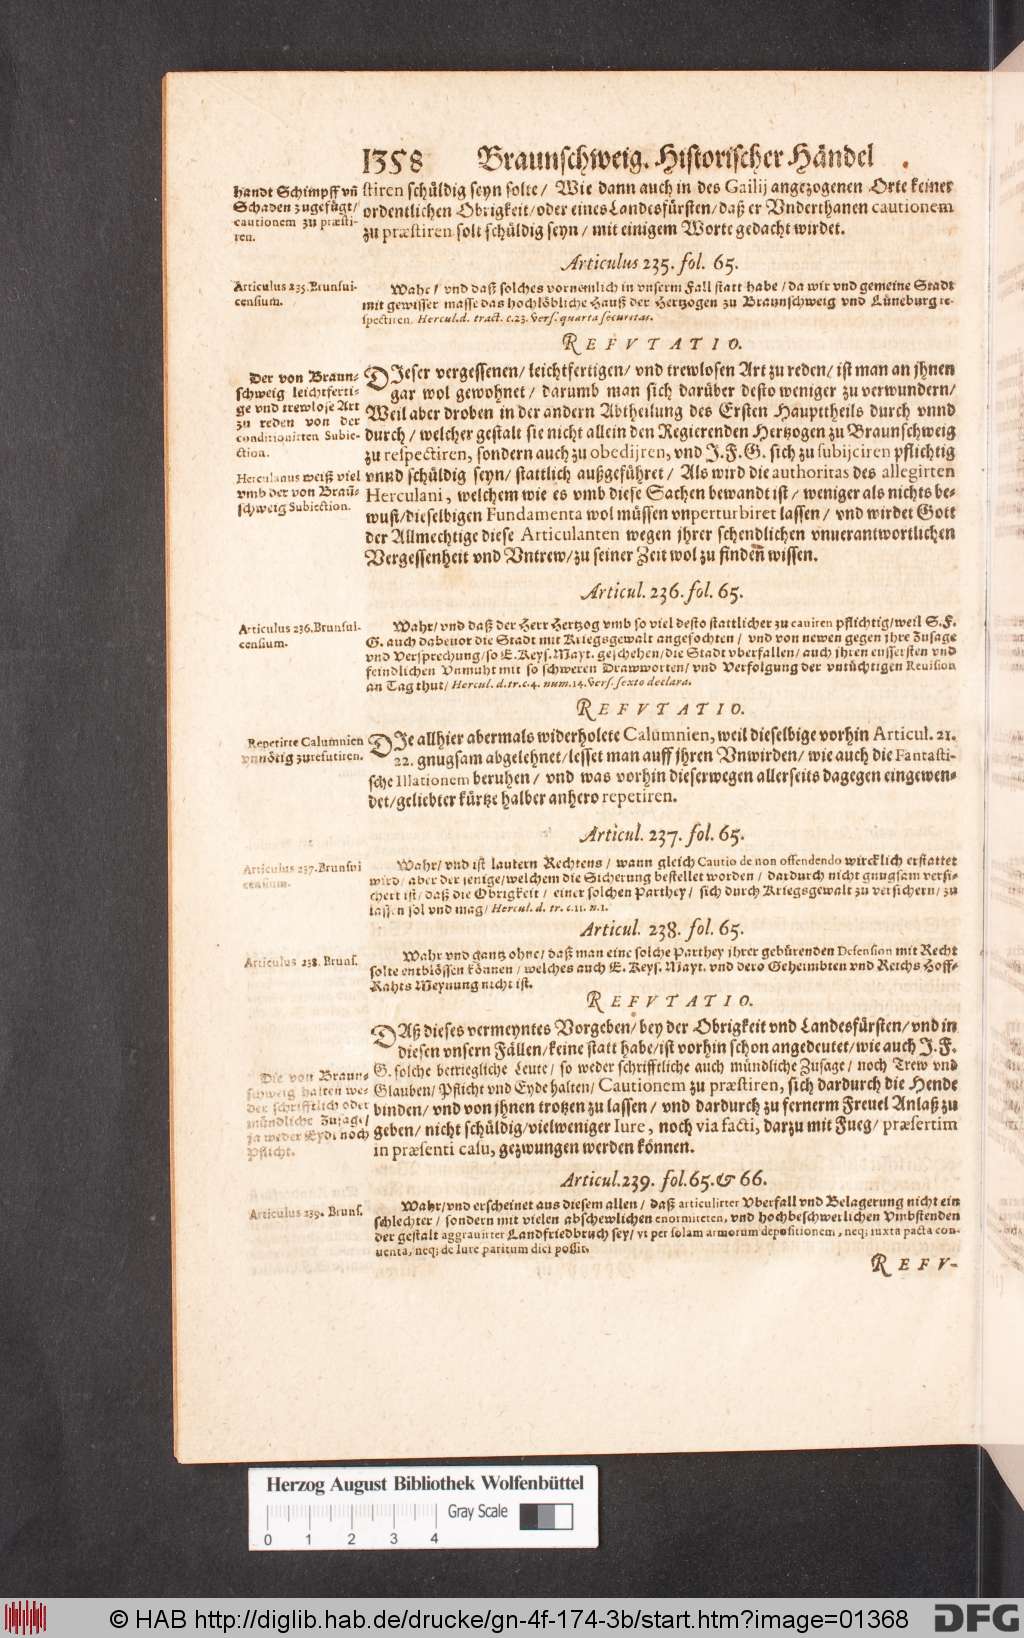 1358 Braunschweig. Historischer Händel
handt Schimpff vn̄
Schaden zugefügt/
cautionem zu præsti-
ren.
stiren schüldig seyn solte/ Wie dann auch in des Gailij angezogenen Orte keiner
ordentlichen Obrigkeit/ oder eines Landesfürsten/ daß er Vnderthanen cautionem
zu præstiren solt schüldig seyn/ mit einigem Worte gedacht wirdet.
Articulus 235. fol. 65.
Articulus 235. Brunsui-
censium.
Wahr/ vnd daß solches vornemlich in vnserm Fall statt habe/ da wir vnd gemeine Stadt
mit gewisser masse das hochlöbliche Hauß der Hertzogen zu Braunschweig vnd Lüneburg re-
spectiren. Hercul. d. tract. c. 23. vers. quarta securitas.
REFVTATIO.
Der von Braun-
schweig leichtferti-
ge vnd trewlose Art
zu reden von der
conditionirten Subie-
ction.
Herculanus weiß viel
vmb der von Braū-
schweig Subiection.
DIeser vergessenen/ leichtfertigen/ vnd trewlosen Art zu reden/ ist man an jhnen
gar wol gewohnet/ darumb man sich darüber desto weniger zu verwundern/
Weil aber droben in der andern Abtheilung des Ersten Haupttheils durch vnnd
durch/ welcher gestalt sie nicht allein den Regierenden Hertzogen zu Braunschweig
zu respectiren, sondern auch zu obedijren, vnd J. F. G. sich zu subijciren pflichtig
vnnd schüldig seyn/ stattlich außgeführet/ Als wird die authoritas des allegirten
Herculani, welchem wie es vmb diese Sachen bewandt ist/ weniger als nichts be-
wust/ dieselbigen Fundamenta wol müssen vnperturbiret lassen/ vnd wirdet Gott
der Allmechtige diese Articulanten wegen jhrer schendlichen vnuerantwortlichen
Vergessenheit vnd Vntrew/ zu seiner Zeit wol zu finden wissen.
Articul. 236. fol. 65.
Articulus 236. Brunsui-
censium.
Wahr/ vnd daß der Herr Hertzog vmb so viel desto stattlicher zu caviren pflichtig/ weil S. F.
G. auch dabeuor die Stadt mit Kriegsgewalt angefochten/ vnd von newen gegen jhre Zusage
vnd Versprechung/ so E. Keys. Mayt. geschehen/ die Stadt vberfallen/ auch jhren eussersten vnd
feindlichen Vnmuht mit so schweren Drawworten/ vnd Verfolgung der vntüchtigen Revision
an Tag thut/ Hercul. d. tr. c. 4. num. 14. vers. sexto declara.
REFVTATIO.
Repetirte Calumnien
vnnötig zu refutiren.
DIe allhier abermals widerholete Calumnien, weil dieselbige vorhin Articul. 21.
22. gnugsam abgelehnet/ lesset man auff jhren Vnwirden/ wie auch die Fantasti-
sche Illationem beruhen/ vnd was vorhin dieserwegen allerseits dagegen eingewen-
det/ geliebter kürtze halber anhero repetiren.
Articul. 237. fol. 65.
Articulus 237. Brunsvi
censium.
Wahr/ vnd ist lautern Rechtens/ wann gleich Cautio de non offendendo wircklich erstattet
wird/ aber der jenige/ welchem die Sicherung bestellet worden/ dardurch nicht gnugsam versi-
chert ist/ daß die Obrigkeit/ einer solchen Parthey/ sich durch Kriegsgewalt zu versichern/ zu
lassen sol vnd mag/ Hercul. d. tr. c. 11. n. 1.
Articul. 238. fol. 65.
Articulus 238. Bruns.
Wahr vnd gantz ohne/ daß man eine solche Parthey jhrer gebürenden Defension mit Recht
solte entblössen können/ welches auch E. Keys. Mayt. vnd dero Geheimbten vnd Reichs Hoff-
Rahts Meynung nicht ist.
REFVTATIO.
Die von Braun-
schweig halten we-
der schrifftlich oder
mündliche Zusage/
ja weder Eyd noch
Pflicht.
DAß dieses vermeyntes Vorgeben/ bey der Obrigkeit vnd Landesfürsten/ vnd in
diesen vnsern Fällen/ keine statt habe/ ist vorhin schon angedeutet/ wie auch J. F.
G. solche betriegliche Leute/ so weder schrifftliche auch mündliche Zusage/ noch Trew vnd
Glauben/ Pflicht vnd Eyde halten/ Cautionem zu præstiren, sich dardurch die Hende
binden/ vnd von jhnen trotzen zu lassen/ vnd dardurch zu fernerm Freuel Anlaß zu
geben/ nicht schüldig/ vielweniger Iure, noch via facti, darzu mit Fueg/ præsertim
in præsenti casu, gezwungen werden können.
Articul. 239. fol. 65. & 66.
Articulus 239. Bruns.
Wahr/ vnd erscheinet aus diesem allen/ daß articulirter Vberfall vnd Belagerung nicht ein
schlechter/ sondern mit vielen abschewlichen enormiteten, vnd hochbeschwerlichen Vmbstenden
der gestalt aggravirter Landfriedbruch sey/ vt per solam armorum depositionem, neq; iuxta pacta con-
uenta, neq; de Iure paritum dici possit.
REFV-
Herzog August Bibliothek Wolfenbüttel
Gray Scale
0 1 2 3 4
© HAB http://diglib.hab.de/drucke/gn-4f-174-3b/start.htm?image=01368
DFG